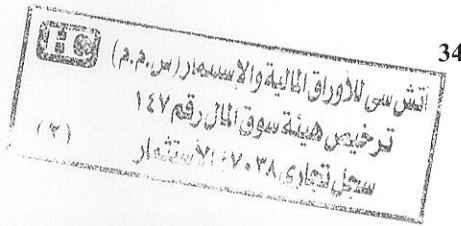 34
HC
اتش سى للأوراق المالية والإستثمار (س.م.م)
ترخيص هيئة سوق المال رقم ١٤٧
سجل تجارى ٧٠٣٨ الاستثمار
(٢)